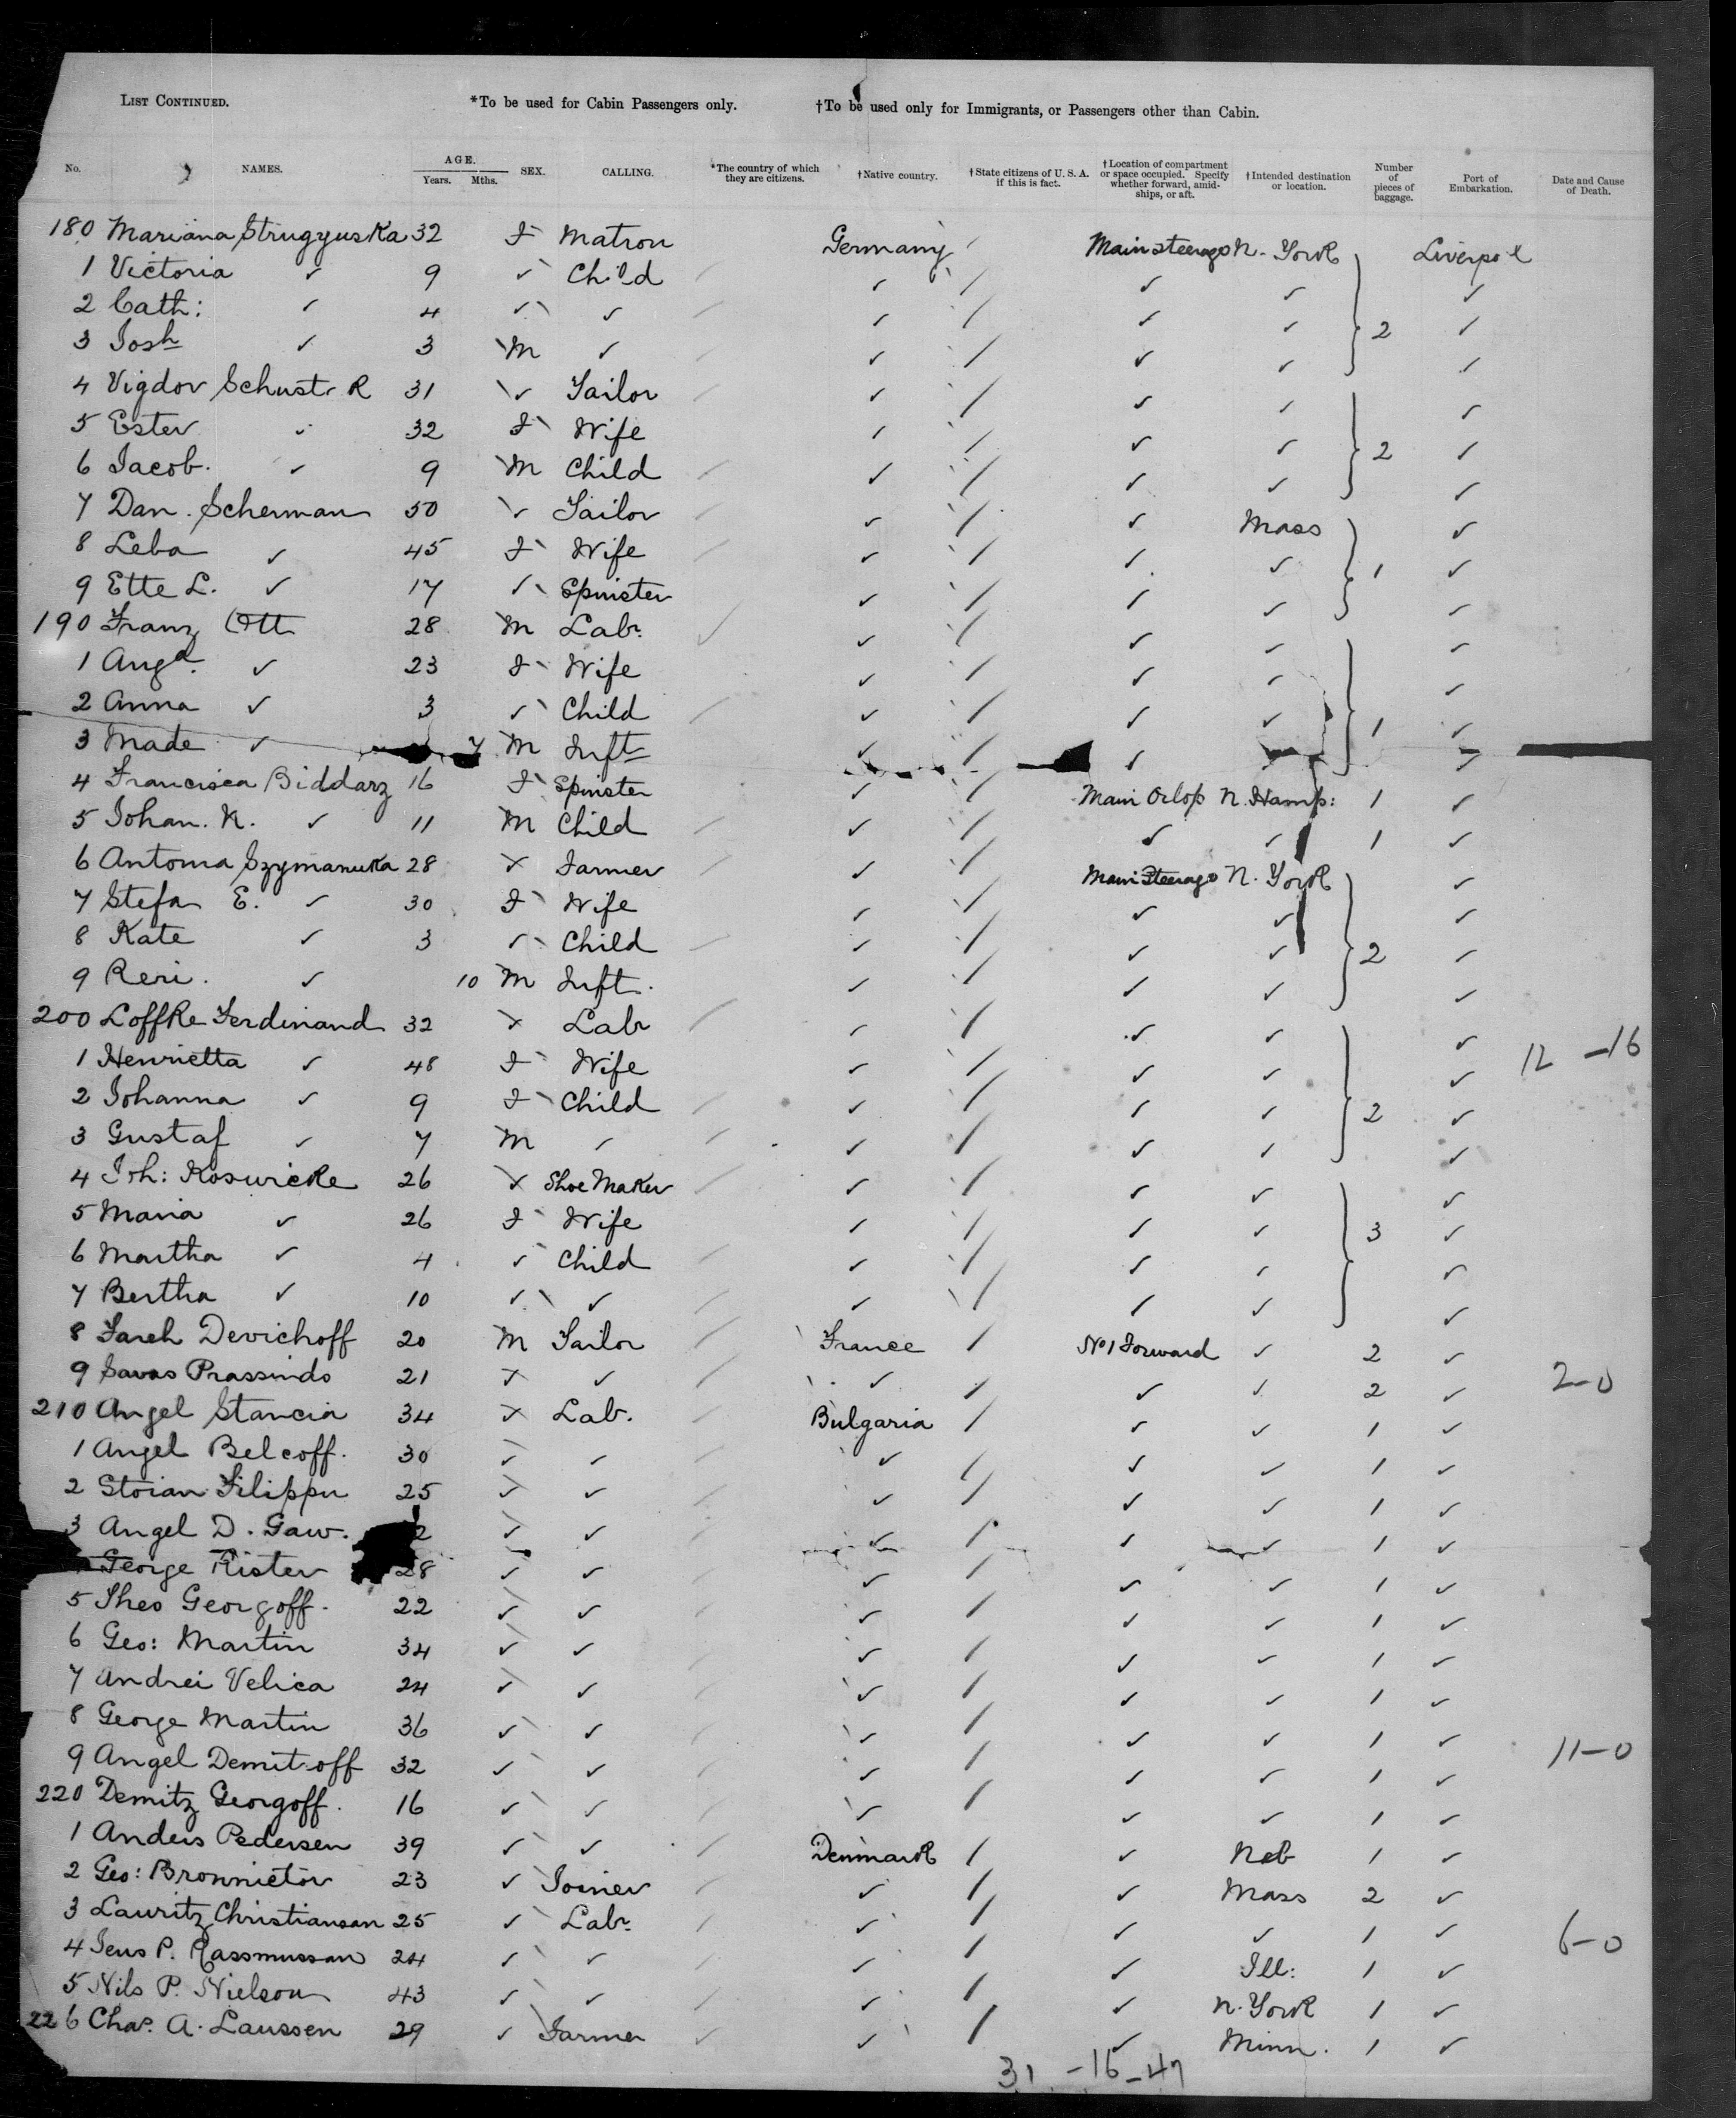 LIST CONTINUED. *To be used for Cabin Passengers only. †To be used only for Immigrants, or Passengers other than Cabin.
No. NAMES. AGE. Years. Mths. SEX. CALLING. *The country of which they are citizens. †Native country. †State citizens of U. S. A. if this is fact. †Location of compartment or space occupied. Specify whether forward, amidships, or aft. †Intended destination or location. Number of pieces of baggage. Port of Embarkation. Date and Cause of Death.
180 Mariana Strugyuska 32 F Matron Germany / Main steerage N. York Liverpool
1 Victoria ✓ 9 ✓ Child ✓ / ✓ ✓ ✓
2 Cath: ✓ 4 ✓ ✓ ✓ / ✓ ✓ 2 ✓
3 Josh ✓ 3 M ✓ ✓ / ✓ ✓ ✓
4 Vigdor Schuster 31 ✓ Tailor ✓ / ✓ ✓ ✓
5 Ester ✓ 32 F Wife ✓ / ✓ ✓ 2 ✓
6 Jacob. ✓ 9 M Child ✓ / ✓ ✓ ✓
7 Dan. Scherman 50 ✓ Tailor ✓ / ✓ Mass ✓
8 Leba ✓ 45 F Wife ✓ / ✓ ✓ 1 ✓
9 Ette L. ✓ 17 ✓ Spinster ✓ / ✓ ✓ ✓
190 Franz Ott 28 M Labr. ✓ / ✓ ✓ ✓
1 Augª. ✓ 23 F Wife ✓ / ✓ ✓ ✓
2 Anna ✓ 3 ✓ Child ✓ / ✓ ✓ 1 ✓
3 Made ✓ 7 M Inft ✓ / ✓ ✓ ✓
4 Francisca Biddarz 16 F Spinster ✓ / Main Orlop N. Hamp: 1 ✓
5 Johan. N. ✓ 11 M Child ✓ / ✓ ✓ 1 ✓
6 Antoma Szymanuka 28 ✓ Farmer ✓ / Main Steerage N. York ✓
7 Stefa E. ✓ 30 F Wife ✓ / ✓ ✓ ✓
8 Kate ✓ 3 ✓ Child ✓ / ✓ ✓ 2 ✓
9 Reri. ✓ 10 M Inft. ✓ / ✓ ✓ ✓
200 Loffke Ferdinand 32 ✓ Labr ✓ / ✓ ✓ ✓ 12 -16
1 Henrietta ✓ 48 F Wife ✓ / ✓ ✓ ✓
2 Johanna ✓ 9 F Child ✓ / ✓ ✓ 2 ✓
3 Gustaf ✓ 7 M ✓ ✓ / ✓ ✓ ✓
4 Joh: Koswicke 26 ✓ Shoe Maker ✓ / ✓ ✓ ✓
5 Maria ✓ 26 F Wife ✓ / ✓ ✓ 3 ✓
6 Martha ✓ 4 ✓ Child ✓ / ✓ ✓ ✓
7 Bertha ✓ 10 ✓ ✓ ✓ / ✓ ✓ ✓
8 Devichoff 20 M Tailor France / No 1 Forward ✓ 2 ✓
9 Savas Prassindo 21 ✓ ✓ ✓ / ✓ ✓ 2 ✓ 2-0
210 Angel Stancia 34 ✓ Lab. Bulgaria / ✓ ✓ 1 ✓
1 Angel Belcoff. 30 ✓ ✓ ✓ / ✓ ✓ 1 ✓
2 Stoian Filippu 25 ✓ ✓ ✓ / ✓ ✓ 1 ✓
3 Angel D. Gaw. 2 ✓ ✓ ✓ / ✓ ✓ 1 ✓
George Rister 28 ✓ ✓ ✓ / ✓ ✓ 1 ✓
5 Theo Georgoff. 22 ✓ ✓ ✓ / ✓ ✓ 1 ✓
6 Geo: Martin 34 ✓ ✓ ✓ / ✓ ✓ 1 ✓
7 Andrei Velica 24 ✓ ✓ ✓ / ✓ ✓ 1 ✓
8 George Martin 36 ✓ ✓ ✓ / ✓ ✓ 1 ✓
9 Angel Demitroff 32 ✓ ✓ ✓ / ✓ ✓ 1 ✓ 11-0
220 Demitz Georgoff. 16 ✓ ✓ ✓ / ✓ ✓ 1 ✓
1 Anders Pedersen 39 ✓ ✓ Denmark / ✓ Neb 1 ✓
2 Geo: Bronnietov 23 ✓ Joiner ✓ / ✓ Mass 2 ✓
3 Lauritz Christiansan 25 ✓ Labr. ✓ / ✓ ✓ 1 ✓ 6-0
4 Jens P. Rassmussan 24 ✓ ✓ ✓ / ✓ Ill: 1 ✓
5 Nils P. Nielson 43 ✓ ✓ ✓ / ✓ N. York 1 ✓
226 Chas. A. Laussen 29 ✓ Farmer ✓ / ✓ Minn. 1 ✓
31 -16-47